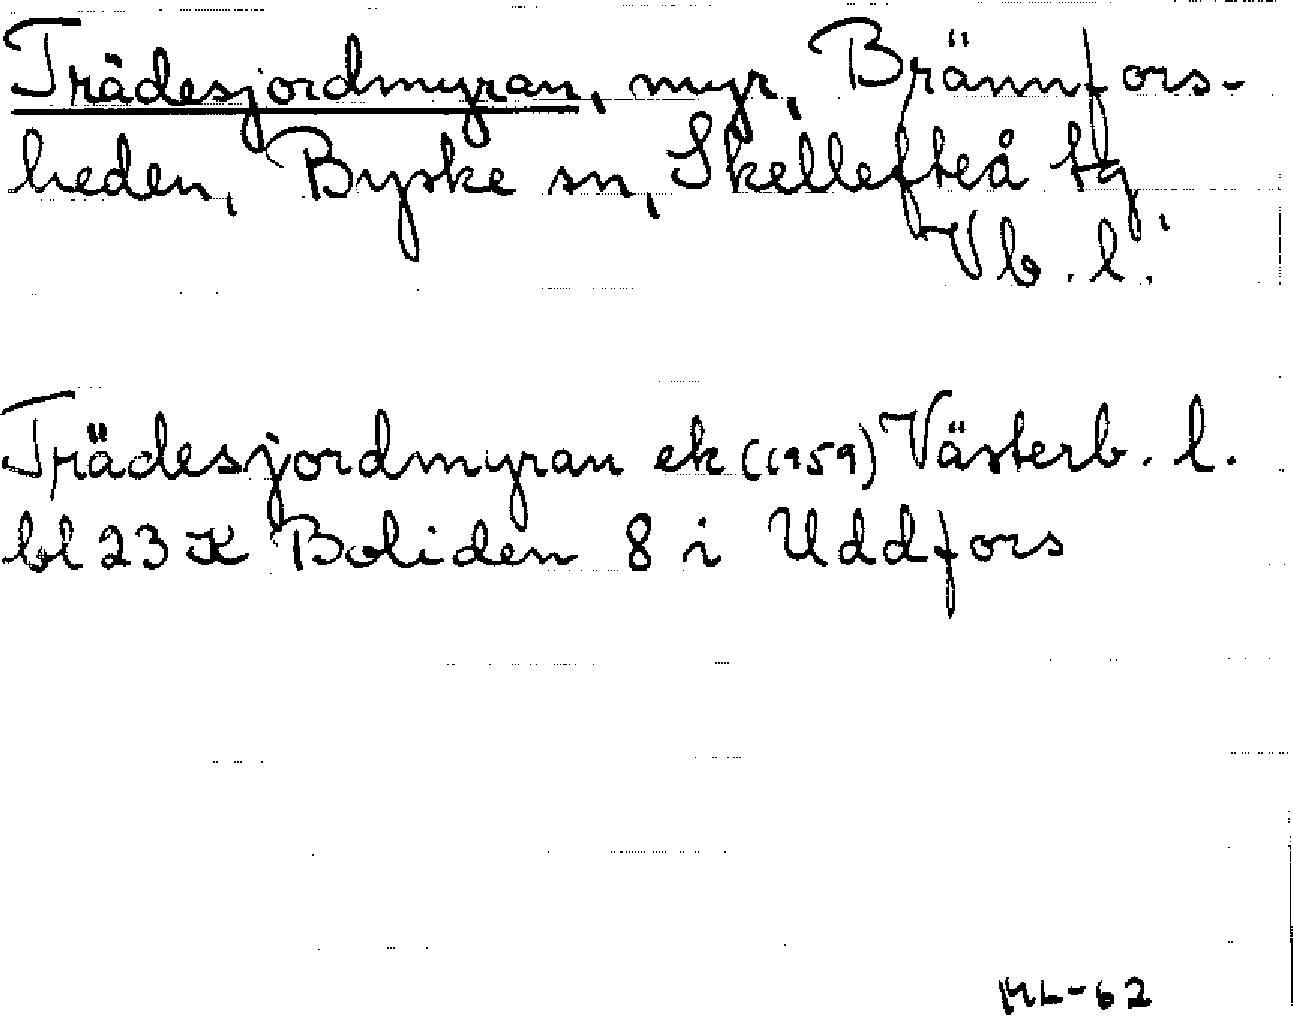 Trädesjordmyran, myr, Brännfors-
heden, Byske sn, Skellefteå tg,
Vb. l.
Trädesjordmyran ek (1959) Västerb. l.
bl 23 K Boliden 8 i Uddfors
ML-62